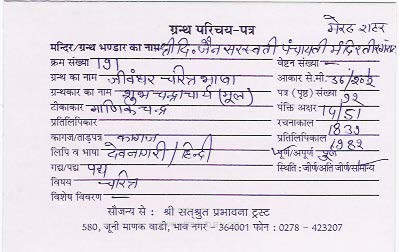 मेरठ शहर
ग्रन्थ परिचय-पत्र
मन्दिर/ग्रन्थ भण्डार का नाम श्री दि. जैन सरस्वती पंचायती मंदिर
क्रम संख्या 191 वेष्टन संख्या
ग्रन्थ का नाम जीवंधर चरित्र भाषा आकार से.मी.
ग्रन्थकार का नाम शुभचन्द्राचार्य (मूल) पत्र (पृष्ठ) संख्या 92
टीकाकार चन्द्र पंक्ति अक्षर 14/51
प्रतिलिपिकार रचनाकाल
कागज/ताड़पत्र कागज प्रतिलिपिकाल
लिपि व भाषा देवनागरी/हिन्दी पूर्ण/अपूर्ण पूर्ण
गद्य/पद्य पद्य स्थिति : जीर्ण/अति जीर्ण/सामान्य
विषय चरित्र
विशेष विवरण
सौजन्य से : श्री सत्श्रुत प्रभावना ट्रस्ट
580, जूनी माणक वाडी, भाव नगर - 364001 फोन : 0278 - 423207